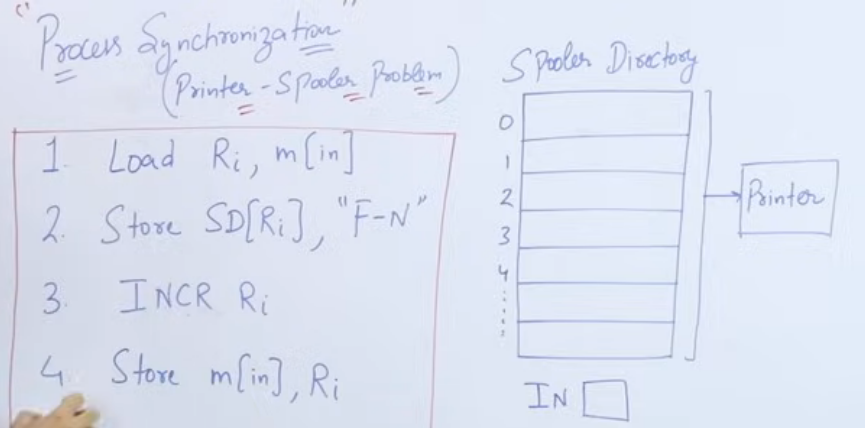 "Process Synchronization"
(Printer - Spooler Problem)
1. Load Ri, m[in]
2. Store SD[Ri], "F-N"
3. INCR Ri
4. Store m[in], Ri
Spooler Directory
0
1
2
3
4
Printer
IN